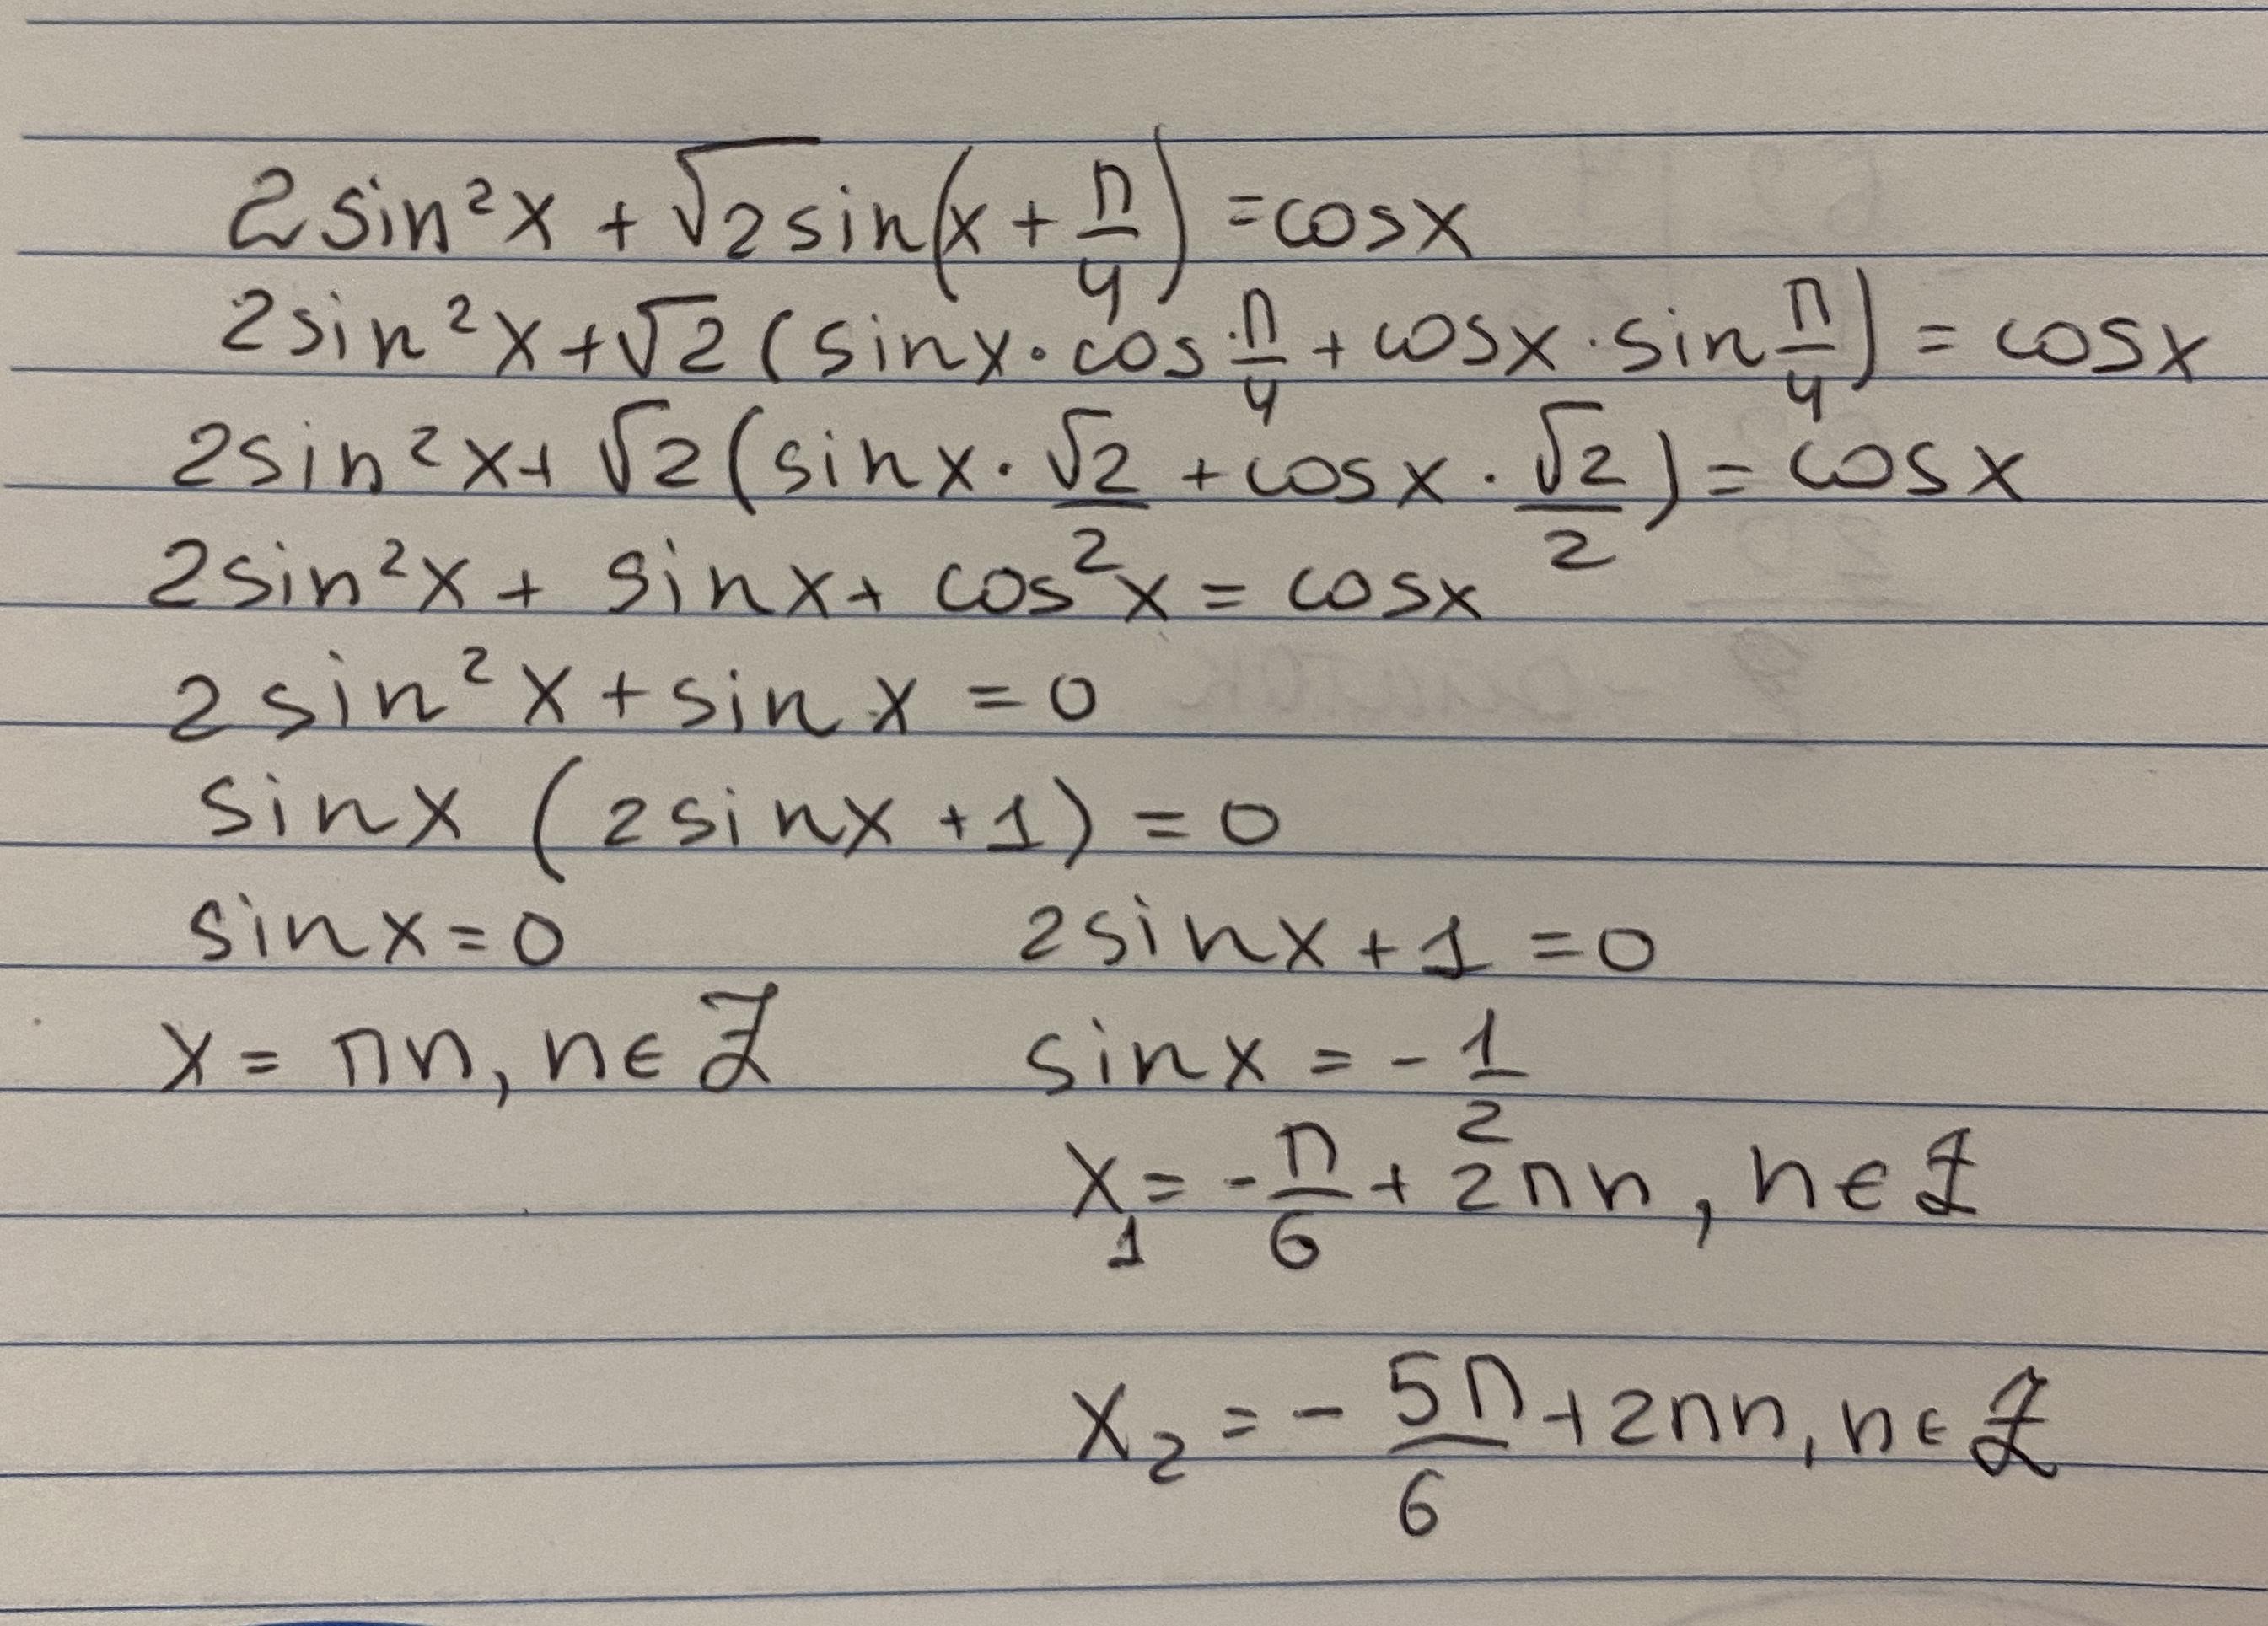 2sin²x + √2sin(x + π/4) = cosx
2sin²x + √2(sinx · cos π/4 + cosx · sin π/4) = cosx
2sin²x + √2(sinx · √2/2 + cosx · √2/2) = cosx
2sin²x + sinx + cos x = cosx
2sin²x + sinx = 0
sinx (2sinx + 1) = 0
sinx = 0 2sinx + 1 = 0
x = πn, n ∈ Z sinx = -1/2
x₁ = -π/6 + 2πn, n ∈ Z
x₂ = -5π/6 + 2πn, n ∈ Z